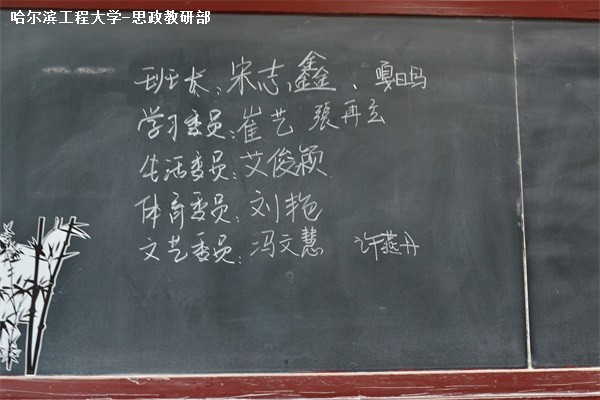 哈尔滨工程大学-思政教研部
班长：宋志鑫、嘎日玛
学习委员：崔艺 張再立
生活委员：艾俊颖
体育委员：刘艳
文艺委员：冯文慧 许燕丹